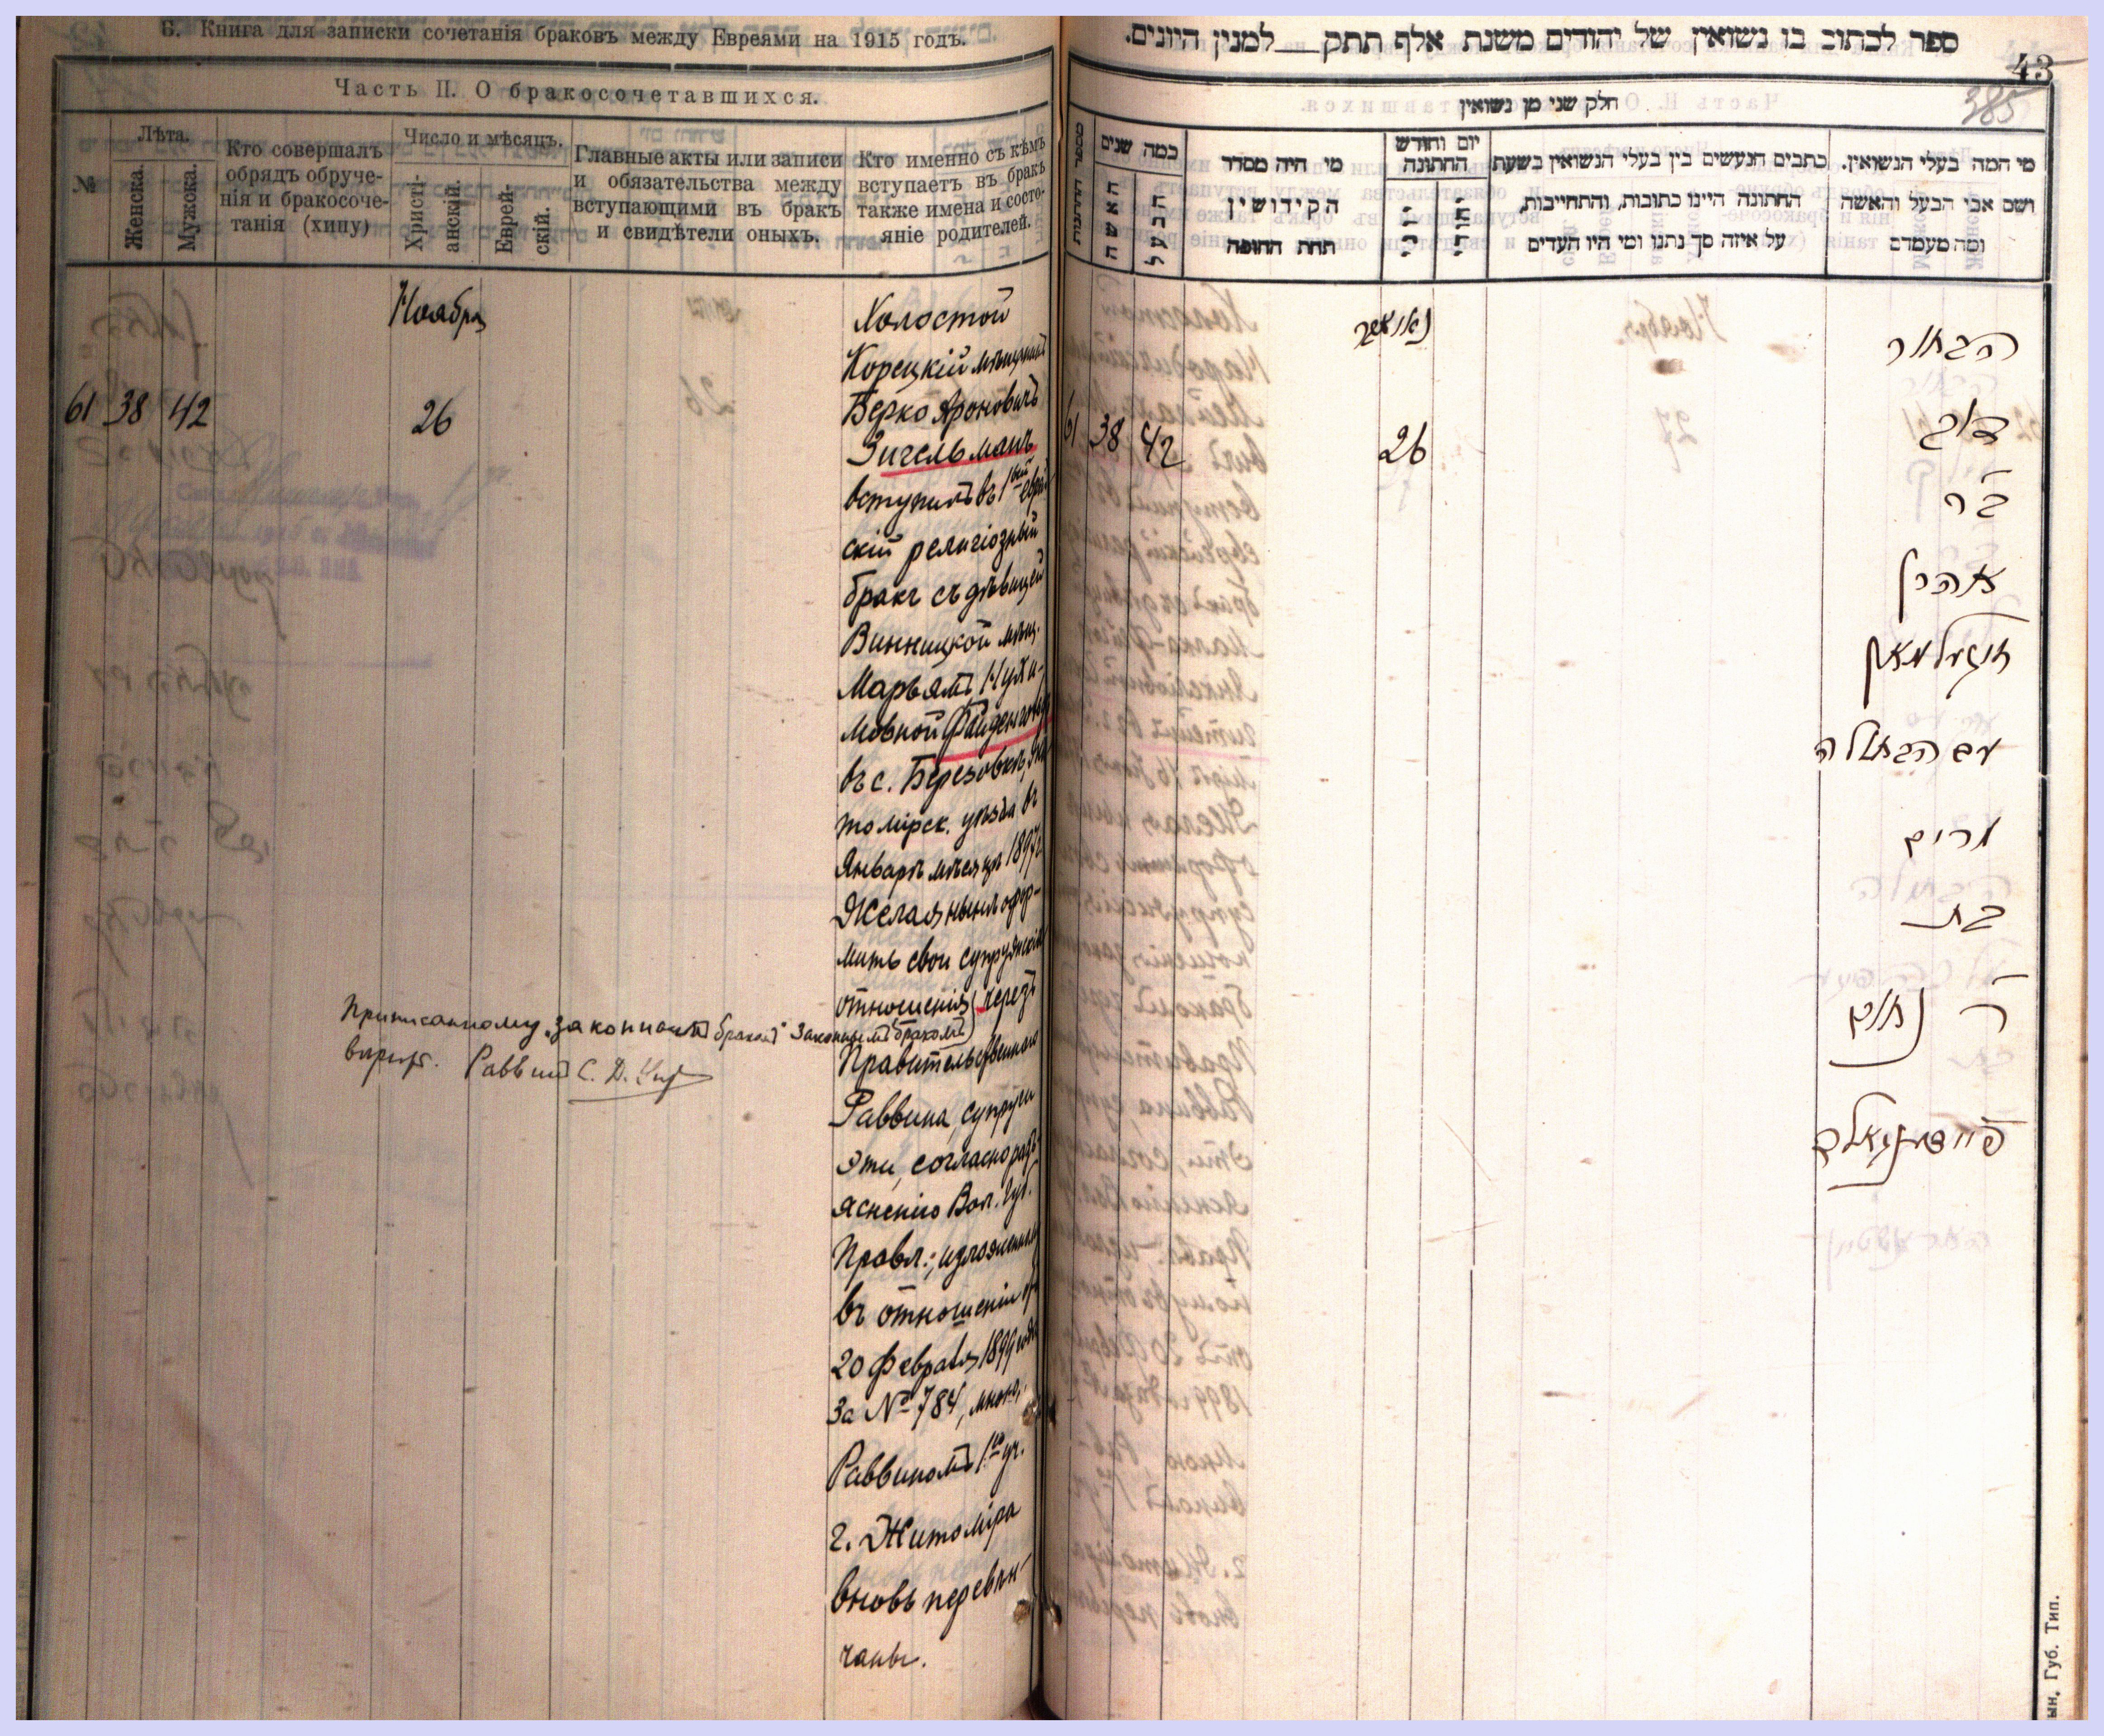 Б. Книга для записки сочетанія браковъ между Евреями на 1915 годъ.
Часть II. О бракосочетавшихся.
№
Лѣта.
Женска.
Мужска.
Кто совершалъ
обрядъ обруче-
нія и бракосоче-
танія (хипу)
Число и мѣсяцъ.
Христі-
анскій.
Еврей-
скій.
Главные акты или записи
и обязательства между
вступающими въ бракъ
и свидѣтели оныхъ.
Кто именно съ кѣмъ
вступаетъ въ бракъ
также имена и состо-
яніе родителей.
61 38 42
Ноября
26
Холостой
Корецкій мѣщанинъ
Берко Ароновичъ
Зигельманъ
вступилъ въ 1вый еврей
скій религіозный
бракъ съ дѣвицей
Винницкой мѣщ.
Марьямъ Нухи-
мовной
въ с. Березовкѣ, Жи
томірск. уѣзда въ
Январѣ мѣсяцѣ 1897 г.
Желая нынѣ офор-
мить свои супружескія
отношенія черезъ
законнымъ бракомъ
Правительственного
Раввина, супруги
эти, согласно разъ
ясненію Вол. Губ.
Правл., изложенному
въ отношеніи отъ
20 февраля 1899 года
за № 784, мною,
Раввиномъ 1го уч.
г. Житоміра
вновь перевѣн
чаны.
Приписанному „законнымъ бракомъ“
вѣрить. Раввинъ С. Д.
ספר לכתוב בו נשואין של יהודים משנת אלף תתק למנין היונים.
43
385
חלק שני מן נשואין
מספר החתנות
כמה שנים
האשה
הבעל
מי היה מסדר
הקידושין
תחת החופה
יום וחודש
החתונה
כתבים הנעשים בין בעלי הנשואין בשעת
החתונה היינו כתובות, והתחייבות,
על איזה סך נתנו ומי היו העדים
מי המה בעלי הנשואין.
ושם אבי הבעל והאשה
ומה מעמדם
61 38 42
נאיאבר
26
הבחור
דוב
ב״ר
אהרן
זיגעלמאן
עם הבתולה
מרים
בת
ר׳ נחום
פיידינגאלד
ын, Губ. Тип.